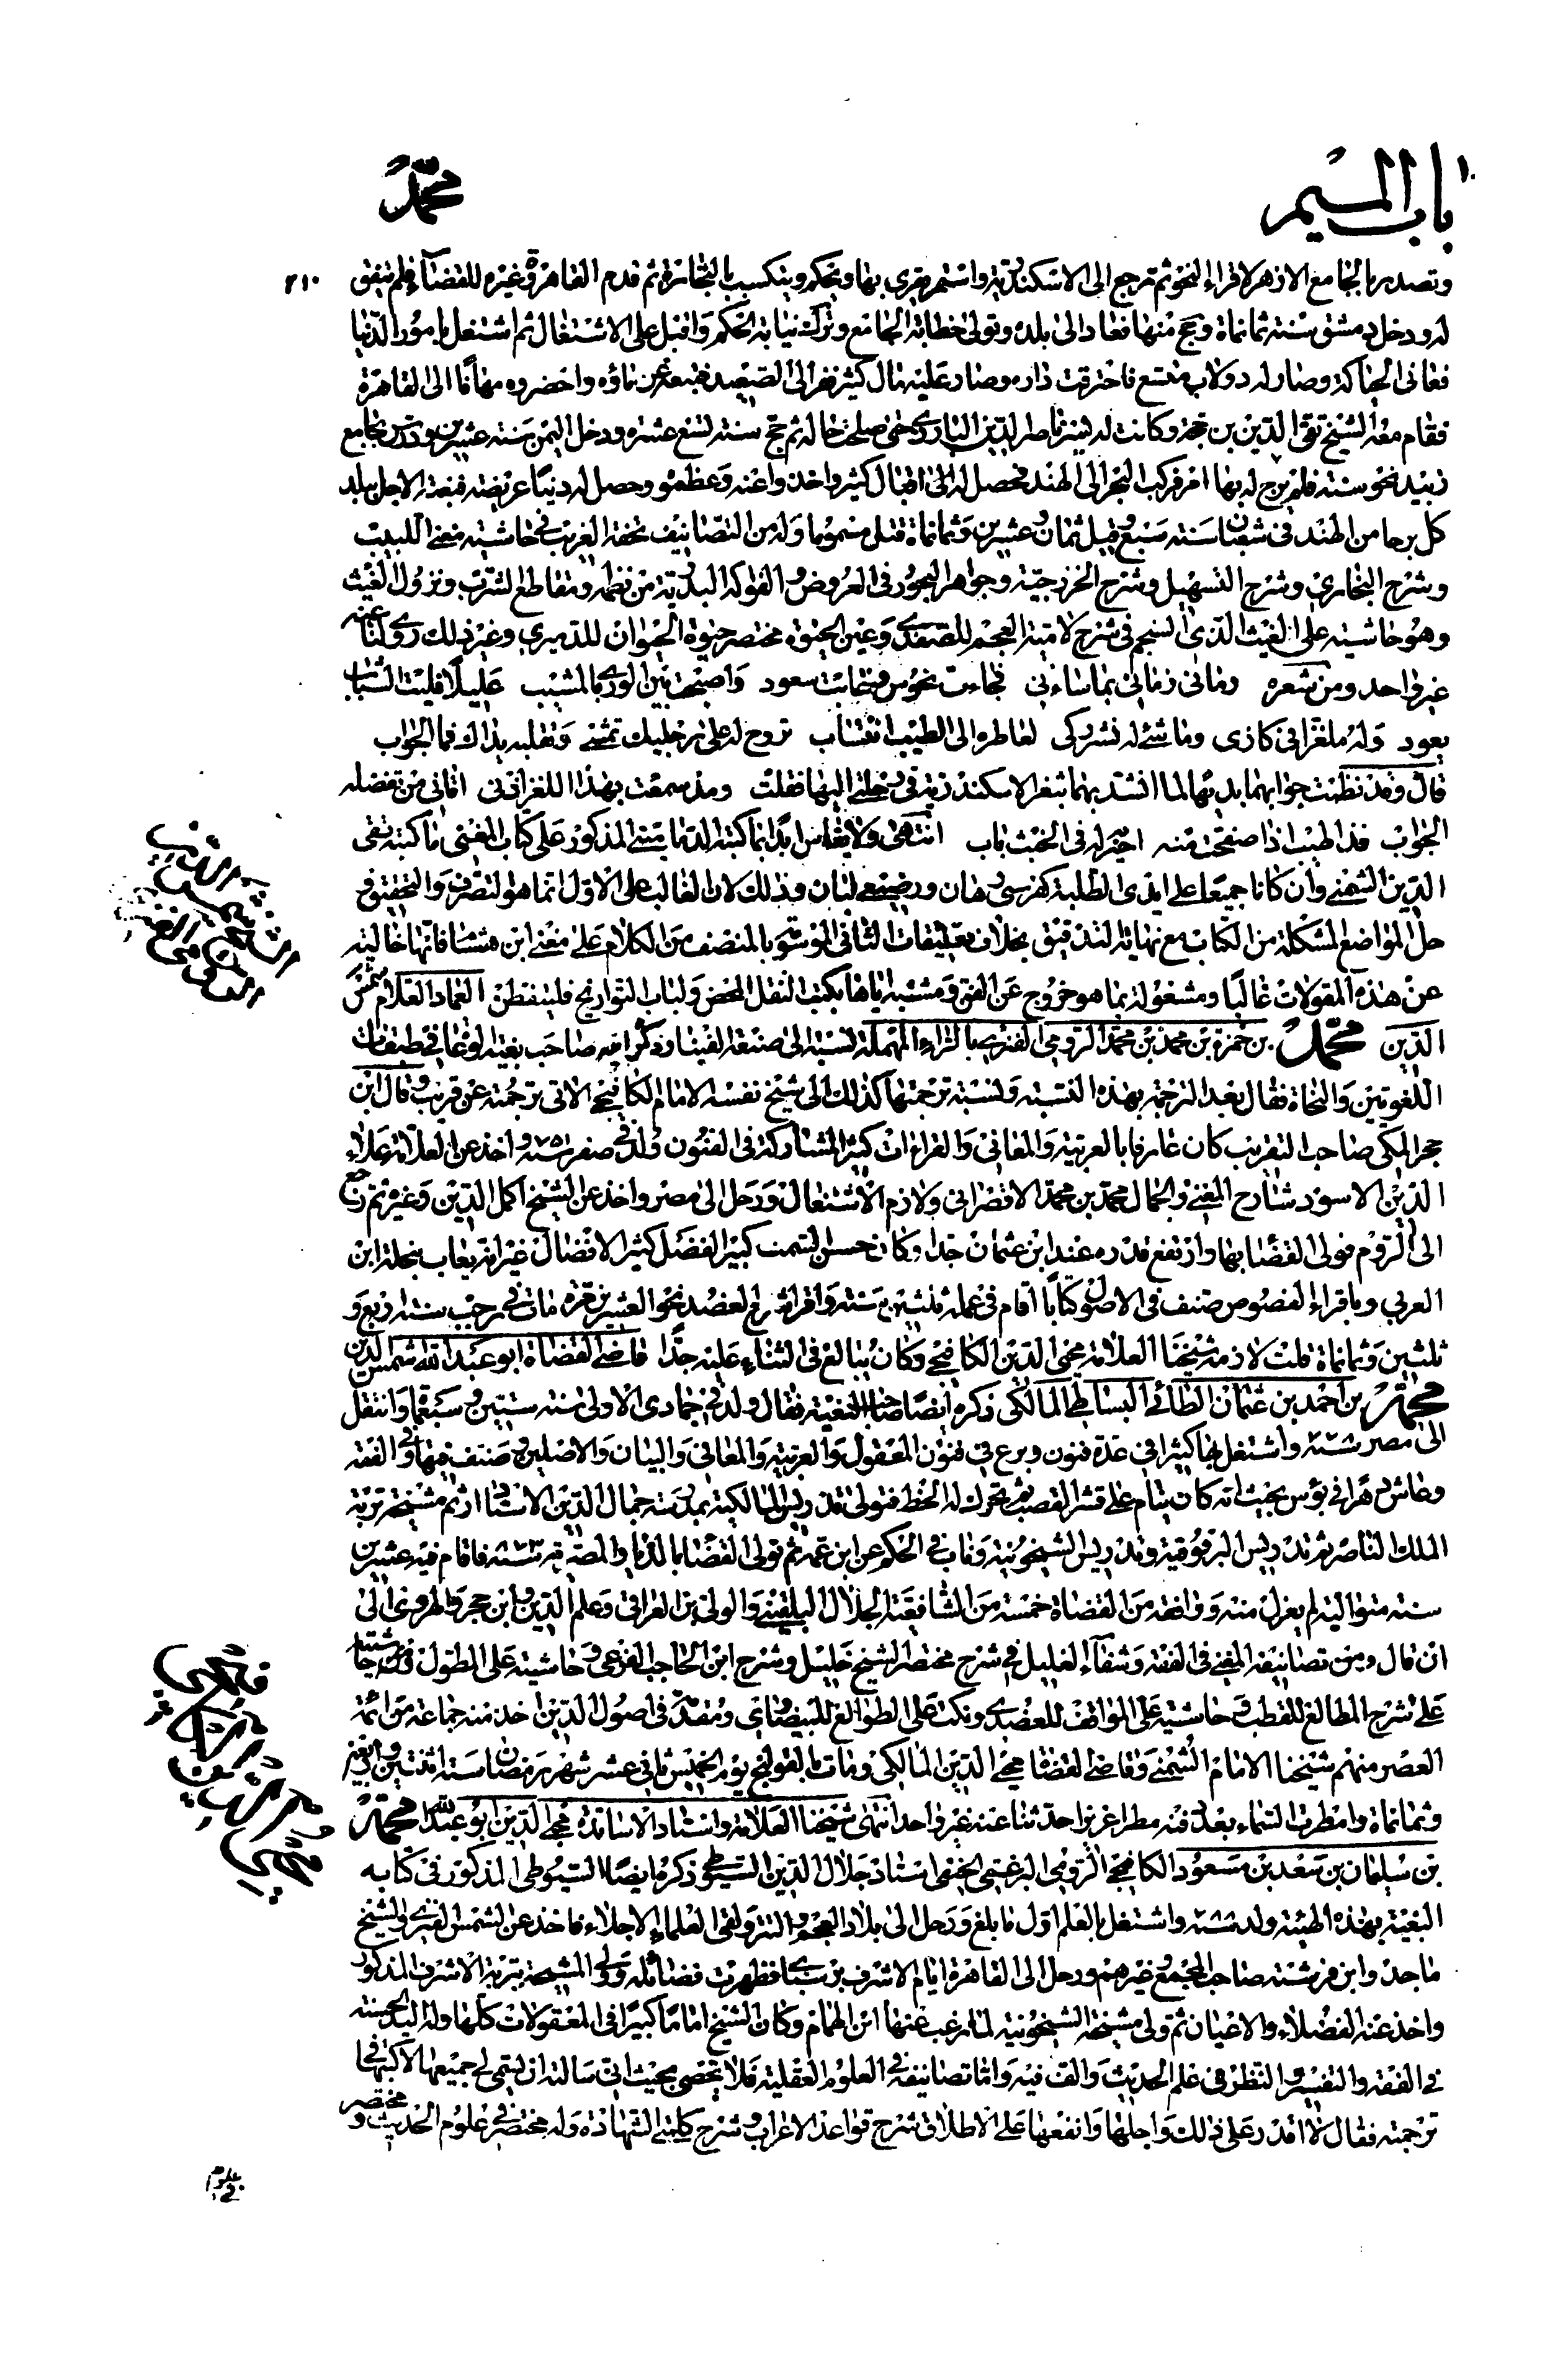 باب الميم
محمد
٢١٠
وتصدر بالجامع الازهر لاقراء النحو ثم رجع الى الاسكندرية واستمر يقرى بها ويحكم ويتكسب بالتجارة ثم قدم القاهرة وعين للقضاء فلم يتفق
له ودخل دمشق سنة ثمانماة وحج منها فعاد الى بلده وتولى خطابة الجامع وترك نيابة الحكم واقبل على الاشتغال ثم اشتغل بامور الدنيا
فعانى الحياكة وصار له دولاب متسع فاحترقت داره وصار عليه مال كثير ففر الى الصعيد فتبعه غرماؤه واحضروه مهانا الى القاهرة
فقام معه الشيخ تقي الدين بن حجة وكاتب السر ناصر الدين البارزي حتى صلحت حاله ثم حج سنة تسع عشره ودخل اليمن سنة عشرين ودرس بجامع
زبيد نحو سنة فلم يرج له بها امر فركب البحر الى الهند فحصل له اقبال كثير واخذوا عنه وعظموه وحصل له دنيا عريضة فبغته الاجل ببلد
كلبرجا من الهند في شعبان سنة سبع وقيل ثمان وعشرين وثمانماة قتل مسموما وله من التصانيف تحفة الغريب في حاشية مغني اللبيب
وشرح البخاري وشرح التسهيل وشرح الخزرجية وجواهر البحور في العروض والفواكه البدرية من نظمه ومقاطع الشرب ونزول الغيث
وهو حاشية على الغيث الذي انسجم في شرح لامية العجم للصفدي وعين الحيوة مختصر حيوة الحيوان للدميري وغير ذلك روى لنا عنه
غير واحد ومن شعره رماني زماني بما ساءني فجاءت نحوس وغابت سعود واصبحت بين الورى بالمشيب عليلا فليت الشباب
يعود وله ملغزا في كاذى وما شئ له نشر زكى لعاطره الى الطيب انتساب تروح له على رجليك تمشي وتقلبه يداك فما الجواب
قال وقد نظمت جوابهما بديها لما انشد بهما بثغر الاسكندرية في رحلتي اليها فقلت ومذ سمعت بهذا اللغز اني اتاني من تفضله
الجواب فذا طيب اذا صحفت منه اخيرا له في الخبث باب انتهى ولا يقاس ابدا ما كتبه الدماميني المذكور على كتاب المغني ما كتبه تقي
الدين الشمني وان كانا جميعا على ايدى الطلبة كفرسى رهان ورضيعي لبان وذلك لان الغالب على الاول انما هو التصرف والتحقيق في
حل المواضع المشكلة من الكتاب مع نهاية التدقيق بخلاف تعليقات الثاني الموسوم بالمنصف من الكلام على مغني ابن هشام فانها خالية
عن هذه المقولات غالبا ومشغولة بما هو خروج عن الفن ومشتبه اياها بكتب النقل المحض ولباب التواريخ فليتفطن العماد العلام شمس
الدين محمد بن حمزة بن محمد بن محمد الرومي الفنري بالراء المهملة نسبة الى صنعة الفينار ذكره صاحب بغية الوعاة في طبقات
اللغويين والنحاة فقال بعد الترجمة بهذه النسبة ولنسبة ترجمتها كذلك الى شيخ نفسه الامام الكافيجي الاتي ترجمته عن قريب وقال ابن
حجر المكي صاحب التقريب كان عارفا بالعربية والمعاني والقراءات كثير المشاركة في الفنون ولد في صفر سنة ٧٥١ واخذ عن العلامة علاء
الدين الاسود شارح المغني والجمال محمد بن محمد الاقصرائي ولازم الاشتغال ورحل الى مصر واخذ عن الشيخ اكمل الدين وغيره ثم رجع
الى الروم فولى القضا بها وارتفع قدره عند ابن عثمان جدا وكان حسن السمت كبير الفضل كثير الافضال غير انه يعاب بنحلة ابن
العربي وباقراء الفصوص صنف في الاصول كتابا اقام في عمله ثلثين سنة واقرا شرح العضد نحو العشرين مرة مات في رجب سنة اربع و
ثلثين وثمانماة قلت لازمه شيخنا العلامة محيى الدين الكافيجي وكان يبالغ في الثناء عليه جدا قاضي القضاة ابو عبد الله شمس الدين
محمد بن احمد بن عثمان الطائي البساطي المالكي ذكره ايضا صاحب البغية فقال ولد في جمادى الاولى سنة ستين وسبعمأ وانتقل
الى مصر واشتغل بها كثيرا في عدة فنون وبرع في فنون المعقول والعربية والمعاني والبيان والاصلين وصنف فيها وفي الفقه
وعاش دهرا في بؤس بحيث انه كان ينام على قشر القصب ثم تحرك له الحظ فتولى تدريس المالكية بمدرسة جمال الدين الاستادار ثم مشيخة تربة
الملك الناصر ثم تدريس البرقوقية وتدريس الشيخونية وناب في الحكم عن ابن عمه ثم تولى القضا بالديار المصرية فاقام فيه عشرين
سنة متوالية لم يعزل منه ووافقه من القضاة خمسة من الشافعية الجلال البلقيني والولي بن العراقي وعلم الدين وابن حجر والهروي الى
ان قال ومن تصانيفه المغني في الفقه وشفاء الغليل في شرح مختصر الشيخ خليل وشرح ابن الحاجب الفرعي وحاشية على المطول وحاشية
على شرح المطالع للقطب وحاشية على المواقف للعضدي ونكت على الطوالع للبيضاوي ومقدمة في اصول الدين اخذ منه جماعة من ائمة
العصر منهم شيخنا الامام الشمني وقاضي القضاة محيي الدين المالكي ومات بالقولنج يوم الخميس ثاني عشر شهر رمضان سنة اثنتين واربعين
وثمانماة وامطرت السماء بعد دفنه مطرا غزيرا حدثنا عنه غير واحد انتهى شيخنا العلامة واستاد الاساتذة محيي الدين ابو عبد الله محمد
بن سليمان بن سعد بن مسعود الكافيجي الرومي البرغمي الحنفي استاذ جلال الدين السيوطي ذكره ايضا السيوطي المذكور في كتابه
البغية بهذه الهيئة ولد واشتغل بالعلم اول ما بلغ ورحل الى بلاد العجم والتتر ولقي العلماء الاجلاء فاخذ عن الشمس الفنري والشيخ
ماجد وابن فرشته صاحب المجمع وغيرهم ورحل الى القاهرة ايام الاشرف برسباى فظهرت فضائله وولي المشيخة بتربة الاشرف المذكور
واخذ عنه الفضلاء والاعيان ثم ولى مشيخة الشيخونية لما رغب عنها ابن الهمام وكان الشيخ اماما كبيرا في المعقولات كلها وله اليد الحسنة
في الفقه والتفسير والنظر في علم الحديث والف فيه واما تصانيفه في العلوم العقلية فلا تحصى بحيث اني سالته ان يسمي لي جميعها لاكتبها في
ترجمته فقال لا اقدر على ذلك واجلها وانفعها على الاطلاق شرح قواعد الاعراب وشرح كلمتي الشهادة وله مختصر في علوم الحديث ومختصر
علوم